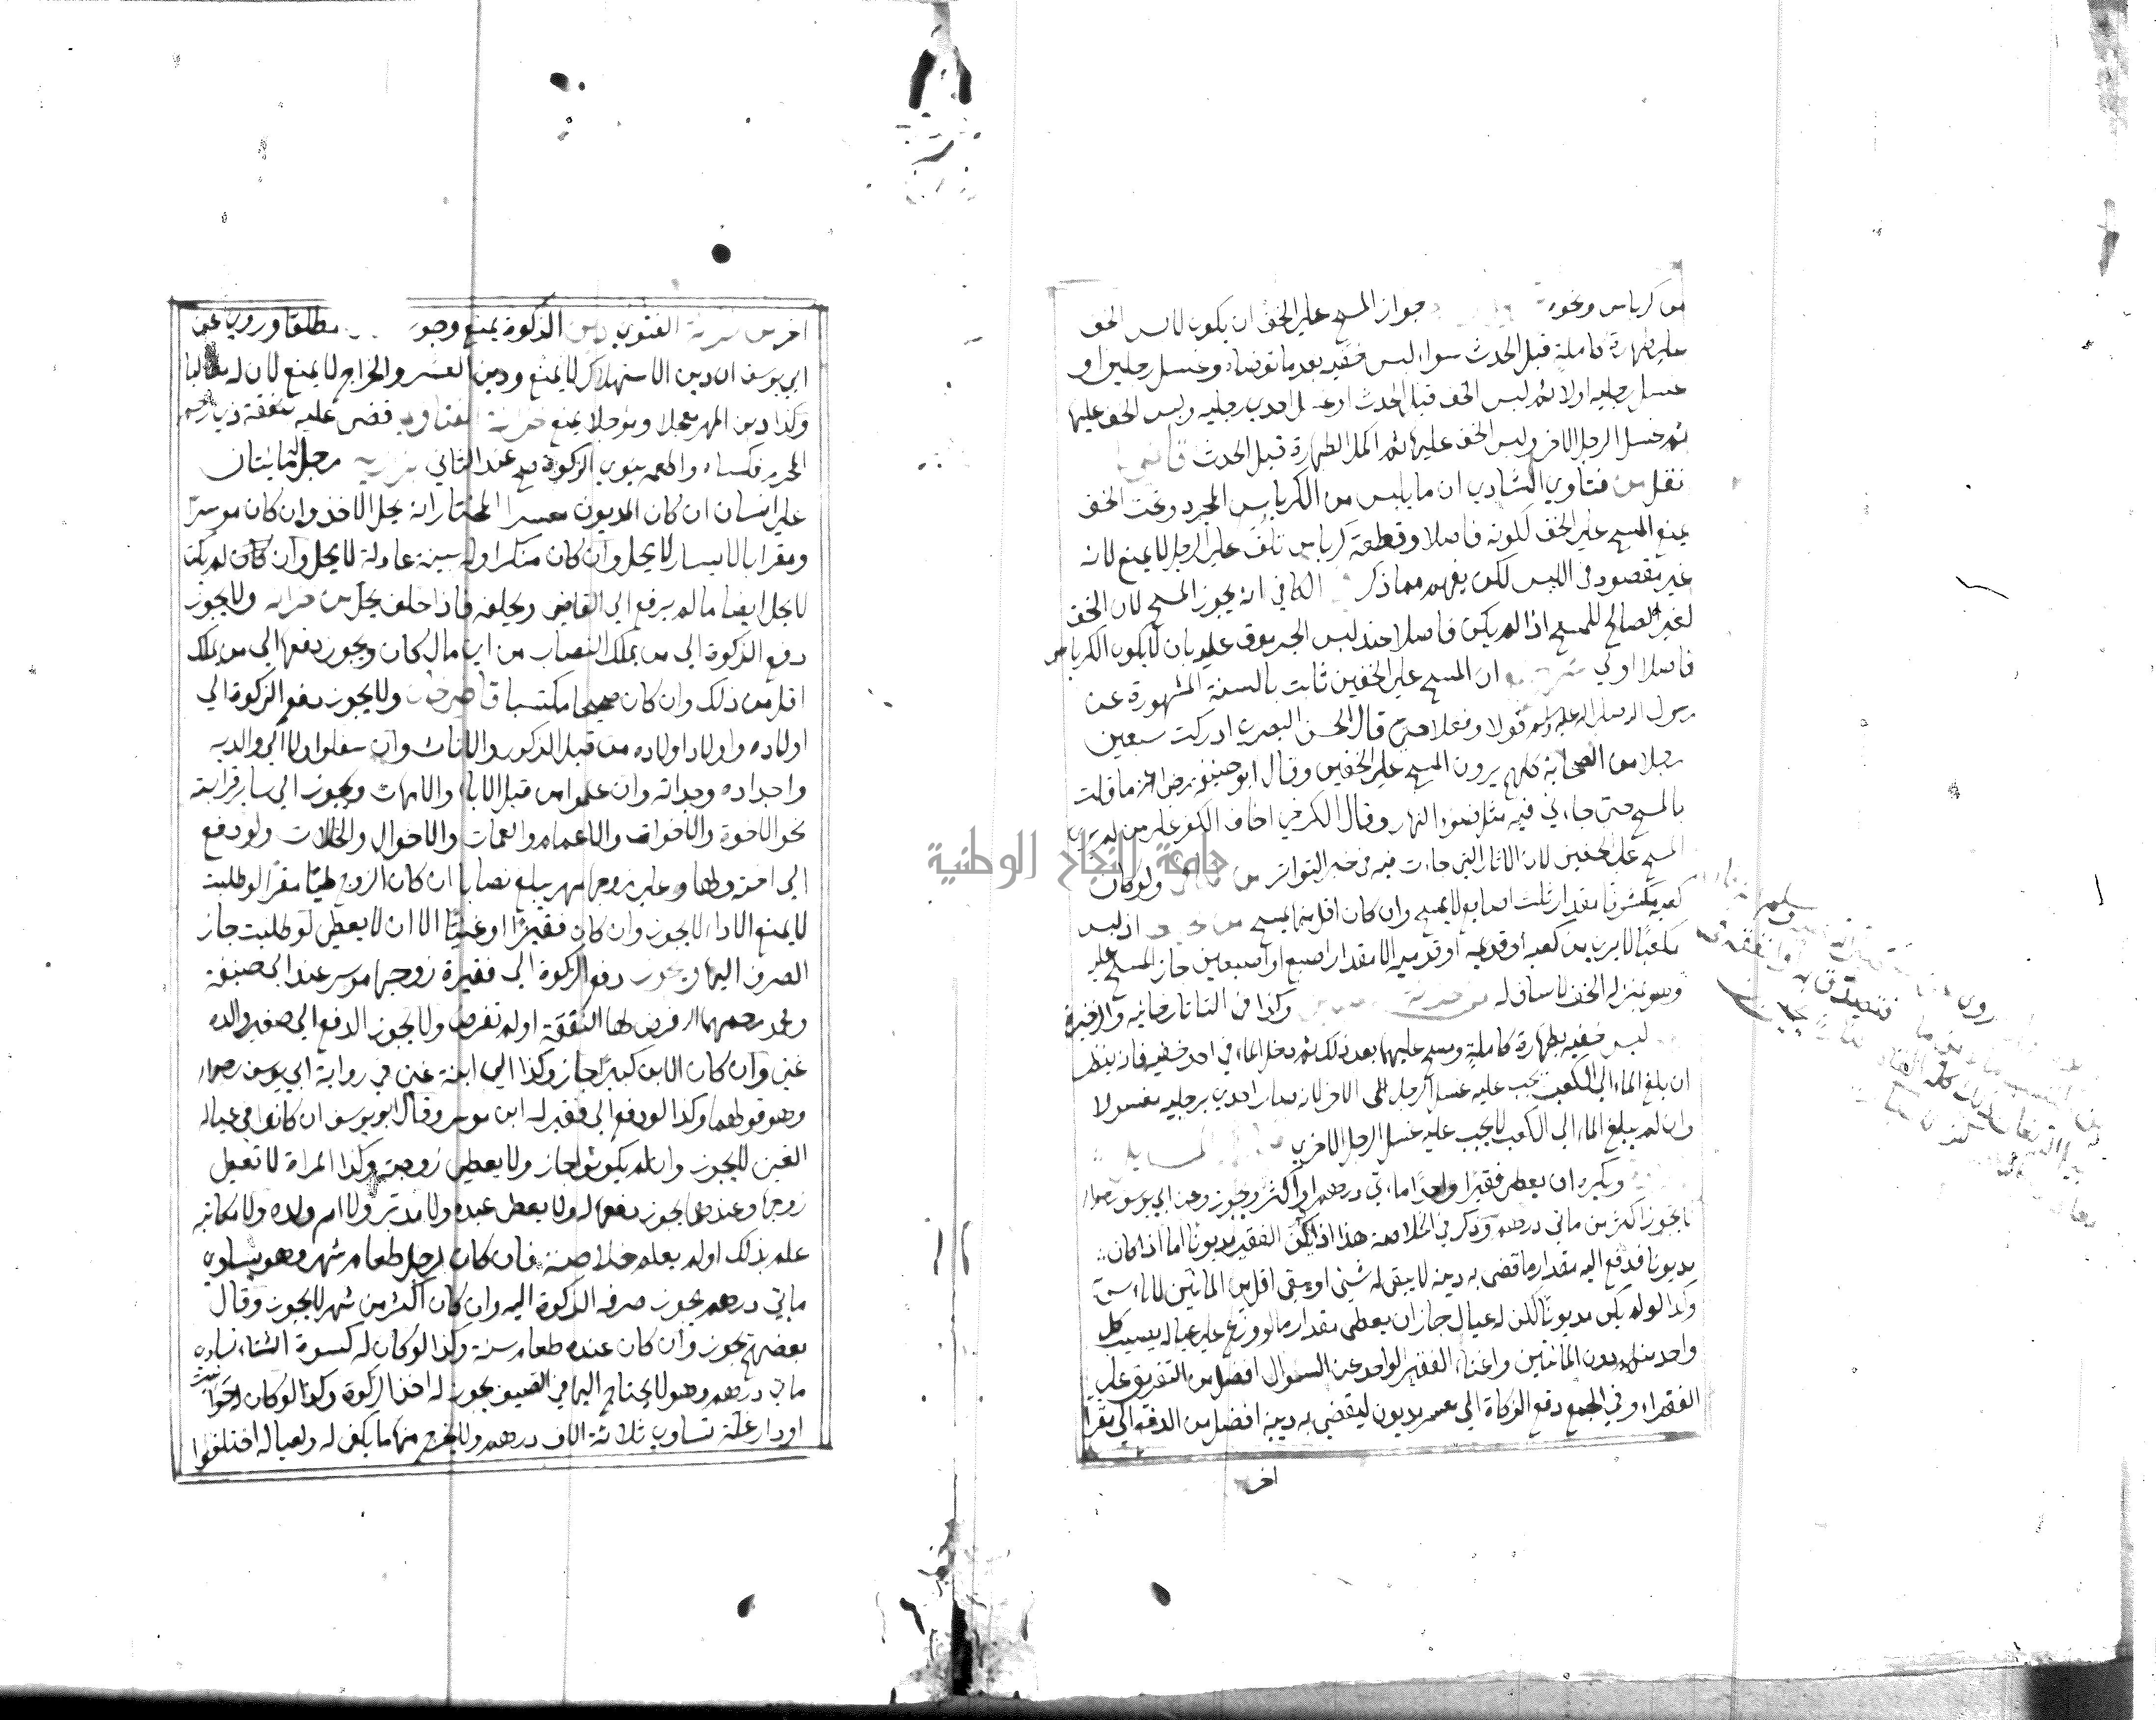 من كرباس ونحوه جواز المسح على الخف ان يكون لابس الخف
على طهارة كاملة قبل الحدث سواء لبس خفيه بعد ما توضاء وغسل رجليه او
غسل رجليه اولا ثم لبس الخف قبل الحدث او غسل احدى رجليه ولبس الخف عليها
ثم غسل الرجل الاخر ولبس الخف عليها ثم اكمل الطهارة قبل الحدث
نقل من فتاوي الشادي ان ما يلبس من الكرباس المجرد وتحت الخف
يمنع المسح على الخف لكونه فاصلا وقطعة كرباس تلف على الرجل لا يمنع لانه
غير مقصود في اللبس لكن يفهم مما ذكر الكافي انه يجوز المسح لان الخف
لغير الصالح للمسح اذا لم يكن فاصلا عند لبس الجرموق عليه بان لا يكون الكرباس
فاصلا اولى ان المسح على الخفين ثابت بالسنة المشهورة عن
رسول الله صلى الله عليه وسلم قولا وفعلا حتى قال الحسن البصري ادركت سبعين
رجلا من الصحابة كلهم يرون المسح على الخفين وقال ابو حنيفة ما قلت
بالمسح حتى جاءني فيه مثل ضوء النهار وقال الكرخي اخاف الكفر على من لم يرى
المسح على الخفين لان الاثار التي جاءت فيه في خبر التواتر ولو كان
كعبه مكشوفا مقدار ثلث اصابع لا يمسح وان كان اقل منه المسح اذ لبس
مكعبا لا يرى من كعبه او قدميه الا مقدار اصبع او اصبعين جاز المسح عليه
وهو بمنزلة الخف لا ساق له وكذا في التاتارخانيه والذخيرة
لبس خفيه بطهارة كاملة ومسح عليهما بعد ذلك ثم دخل الماء في احد خفيه فان ينظر
ان بلغ الماء الى الكعب يجب عليه غسل الرجل الاخر لانه صار احدى رجليه مغسولا
وان لم يبلغ الماء الى الكعب لا يجب عليه غسل الرجل الاخرى
ويكره ان يعطى فقيرا واحدا مائتي درهم او اكثر ويجوز وعن ابي يوسف
لا يجوز اكثر من مائتي درهم وذكر في الخلاصة هذا اذا لم يكن الفقير مديونا اما اذا كان
مديونا فدفع اليه مقدار ما قضى به دينه لا يبقى له شئ او يبقى اقل من المائتين لا باس
وكذا لو لم يكن مديونا لكن له عيال جاز ان يعطى مقدار ما لو وزع على عياله يصيب كل
واحد منهم دون المائتين واغناء الفقير الواحد عن السوال افضل من التفريق على
الفقراء وفي الجمع دفع الزكاة الى معسر مديون ليقضي به دينه افضل من الدفع الى فقراء
اخر
الفتوى دين الزكوة يمنع وجوب مطلقا وروى عن
ابي يوسف ان دين الاستهلاك لا يمنع ودين العشر والخراج لا يمنع لان له مطالبا
وكذا دين المهر معجلا ومؤجلا يمنع قضى عليه بنفقة ذي رحم
المحرم فكساه واطعمه ينوي الزكوة صح عند الثاني رجل له مائتان
على انسان ان كان المديون معسرا المختار انه يحل الاخذ وان كان موسرا
ومقرا بالايسار لا يحل وان كان منكرا وله بينة عادلة لا يحل وان كان لم يكن
لا يحل ايضا ما لم يرفع الى القاضي ويحلفه فاذا حلف يحل من خزانه ولا يجوز
دفع الزكوة الى من يملك النصاب من اي مال كان ويجوز دفعها الى من يملك
اقل من ذلك وان كان صحيحا مكتسبا قاضيخان ولا يجوز دفع الزكوة الى
اولاده واولاد اولاده من قبل الذكور والاناث وان سفلوا ولا الى والديه
واجداده وجداته وان علوا من قبل الاباء والامهات ويجوز الى ساير قرابته
نحو الاخوة والاخوات والاعمام والعمات والاخوال والخالات ولو دفع
الى اخته ولها على زوجها مهر يبلغ نصابا ان كان الزوج مليا مقرا لو طلبت
لا يمنع الاداء لا يجوز وان كان فقيرا او غنيا الا ان لا يعطي لو طلبت جاز
الصرف اليها ويجوز دفع الزكوة الى فقيرة زوجها موسر عند ابي حنيفة
ومحمد رحمهما الله فرض لها النفقة او لم تفرض ولا يجوز الدفع الى صغير والده
غني وان كان الابن كبيرا جاز وكذا الى ابنة غني في رواية ابي يوسف
وهو قولهما وكذا لو دفع الى فقير له ابن موسر وقال ابو يوسف ان كان في عيال
الغني لا يجوز وان لم يكونوا جاز ولا يعطي زوجته وكذا المراة لا تعطي
زوجها وعندهما يجوز دفعها له ولا يعطى عبده ولا مدبره ولا ام ولده ولا مكاتبه
علم بذلك اولم يعلم خلاصة فان كان لرجل طعام شهر وهو يساوي
مائتي درهم يجوز صرف الزكوة اليه وان كان اكثر من شهر لا يجوز وقال
بعضهم يجوز وان كان عنده طعام سنة وكذا لو كان له كسوة الشتاء تساوي
مائتي درهم وهو لا يحتاج اليها في الصيف يجوز له اخذ الزكوة وكذا لو كان له حوانيت
او دار غلة تساوي ثلاثة الاف درهم ولا يخرج منها ما يكفي له ولعياله اختلفوا
جامعة النجاح الوطنية